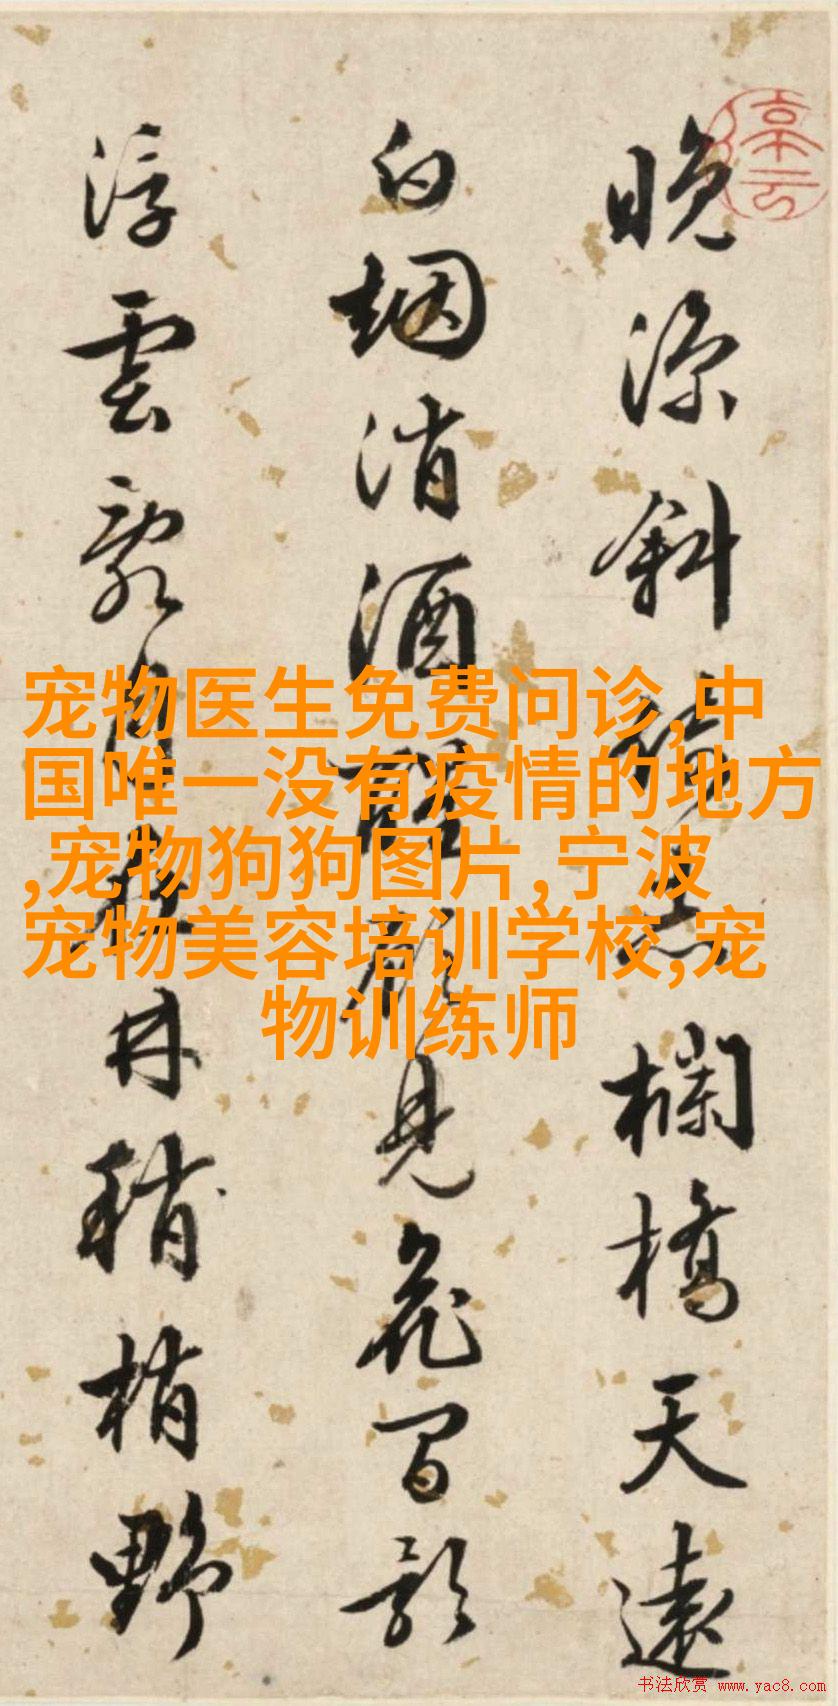 停云
晚涼斜欄橋天遠
白烟消酒醒見花間影
浮雲林梢野
宠物医生免费问诊,中
国唯一没有疫情的地方
,宠物狗狗图片,宁波
宠物美容培训学校,宠
物训练师
书法欣赏 www.yac8.com